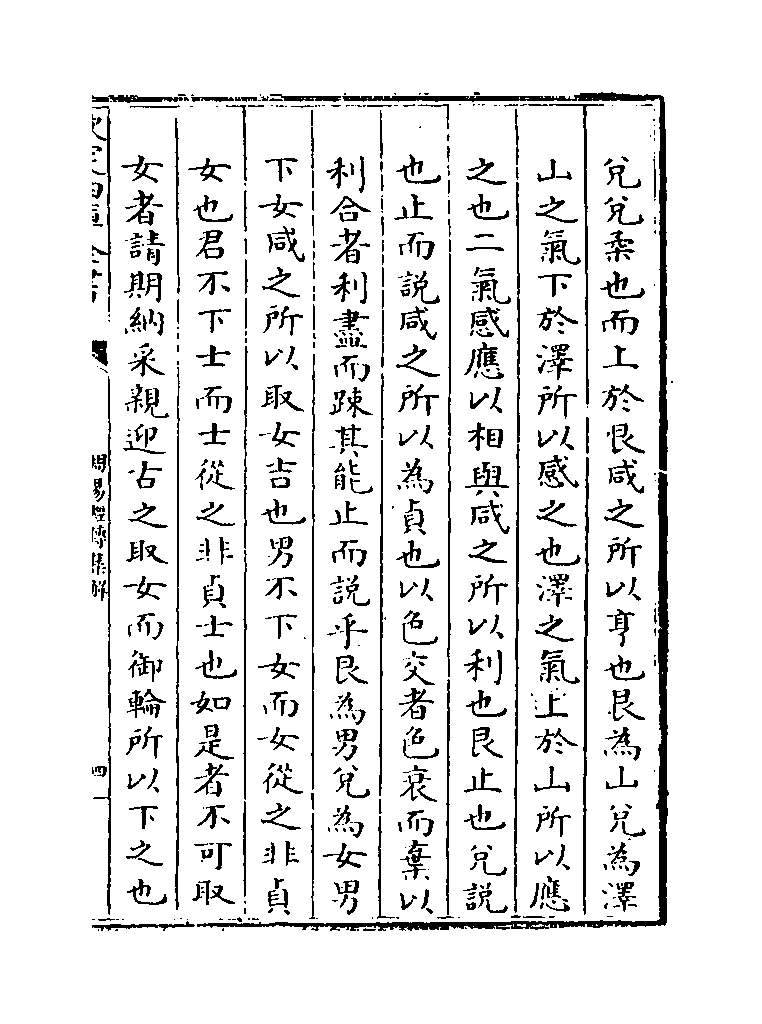 兌兌柔也而上於艮咸之所以亨也艮為山兌為澤
山之氣下於澤所以感之也澤之氣上於山所以應
之也二氣感應以相與咸之所以利也艮止也兌説
也止而説咸之所以為貞也以色交者色衰而棄以
利合者利盡而踈其能止而説乎艮為男兌為女男
下女咸之所以取女吉也男不下女而女從之非貞
女也君不下士而士從之非貞士也如是者不可取
女者請期納采親迎古之取女而御輪所以下之也
欽定四庫全書
周易經傳集解
四